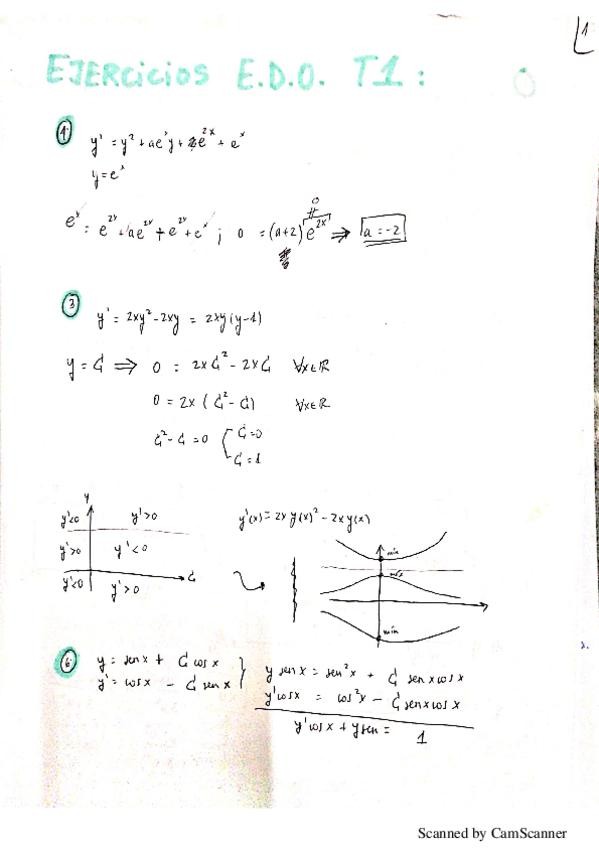 1
EJERCICIOS E.D.O. T1:
1.
y' = y² + ae^x y + e^{2x} + e^x
y = e^x
e^x = e^{2x} + ae^{2x} + e^{2x} + e^x ; 0 = (a+2) e^{2x} ⇒ a = -2
0
3
y' = 2xy² - 2xy = 2xy(y-1)
y = C ⇒ 0 = 2xC² - 2xC ∀x∈ℝ
0 = 2x(C² - C) ∀x∈ℝ
C² - C = 0 C=0
C=1
y
y'<0 y'>0
y'>0 y'<0
y'<0 y'>0
y'(x) = 2x y(x)² - 2x y(x)
min
máx
min
6.
y = sen x + C cos x
y' = cos x - C sen x
y sen x = sen²x + C sen x cos x
y' cos x = cos²x - C sen x cos x
y' cos x + y sen = 1
Scanned by CamScanner